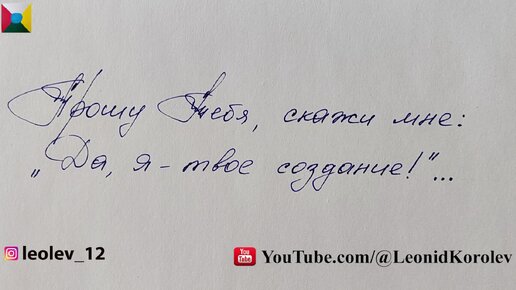 Прошу Тебя, скажи мне:
„Да, я - твое создание!"...
leolev_12
YouTube.com/@LeonidKorolev